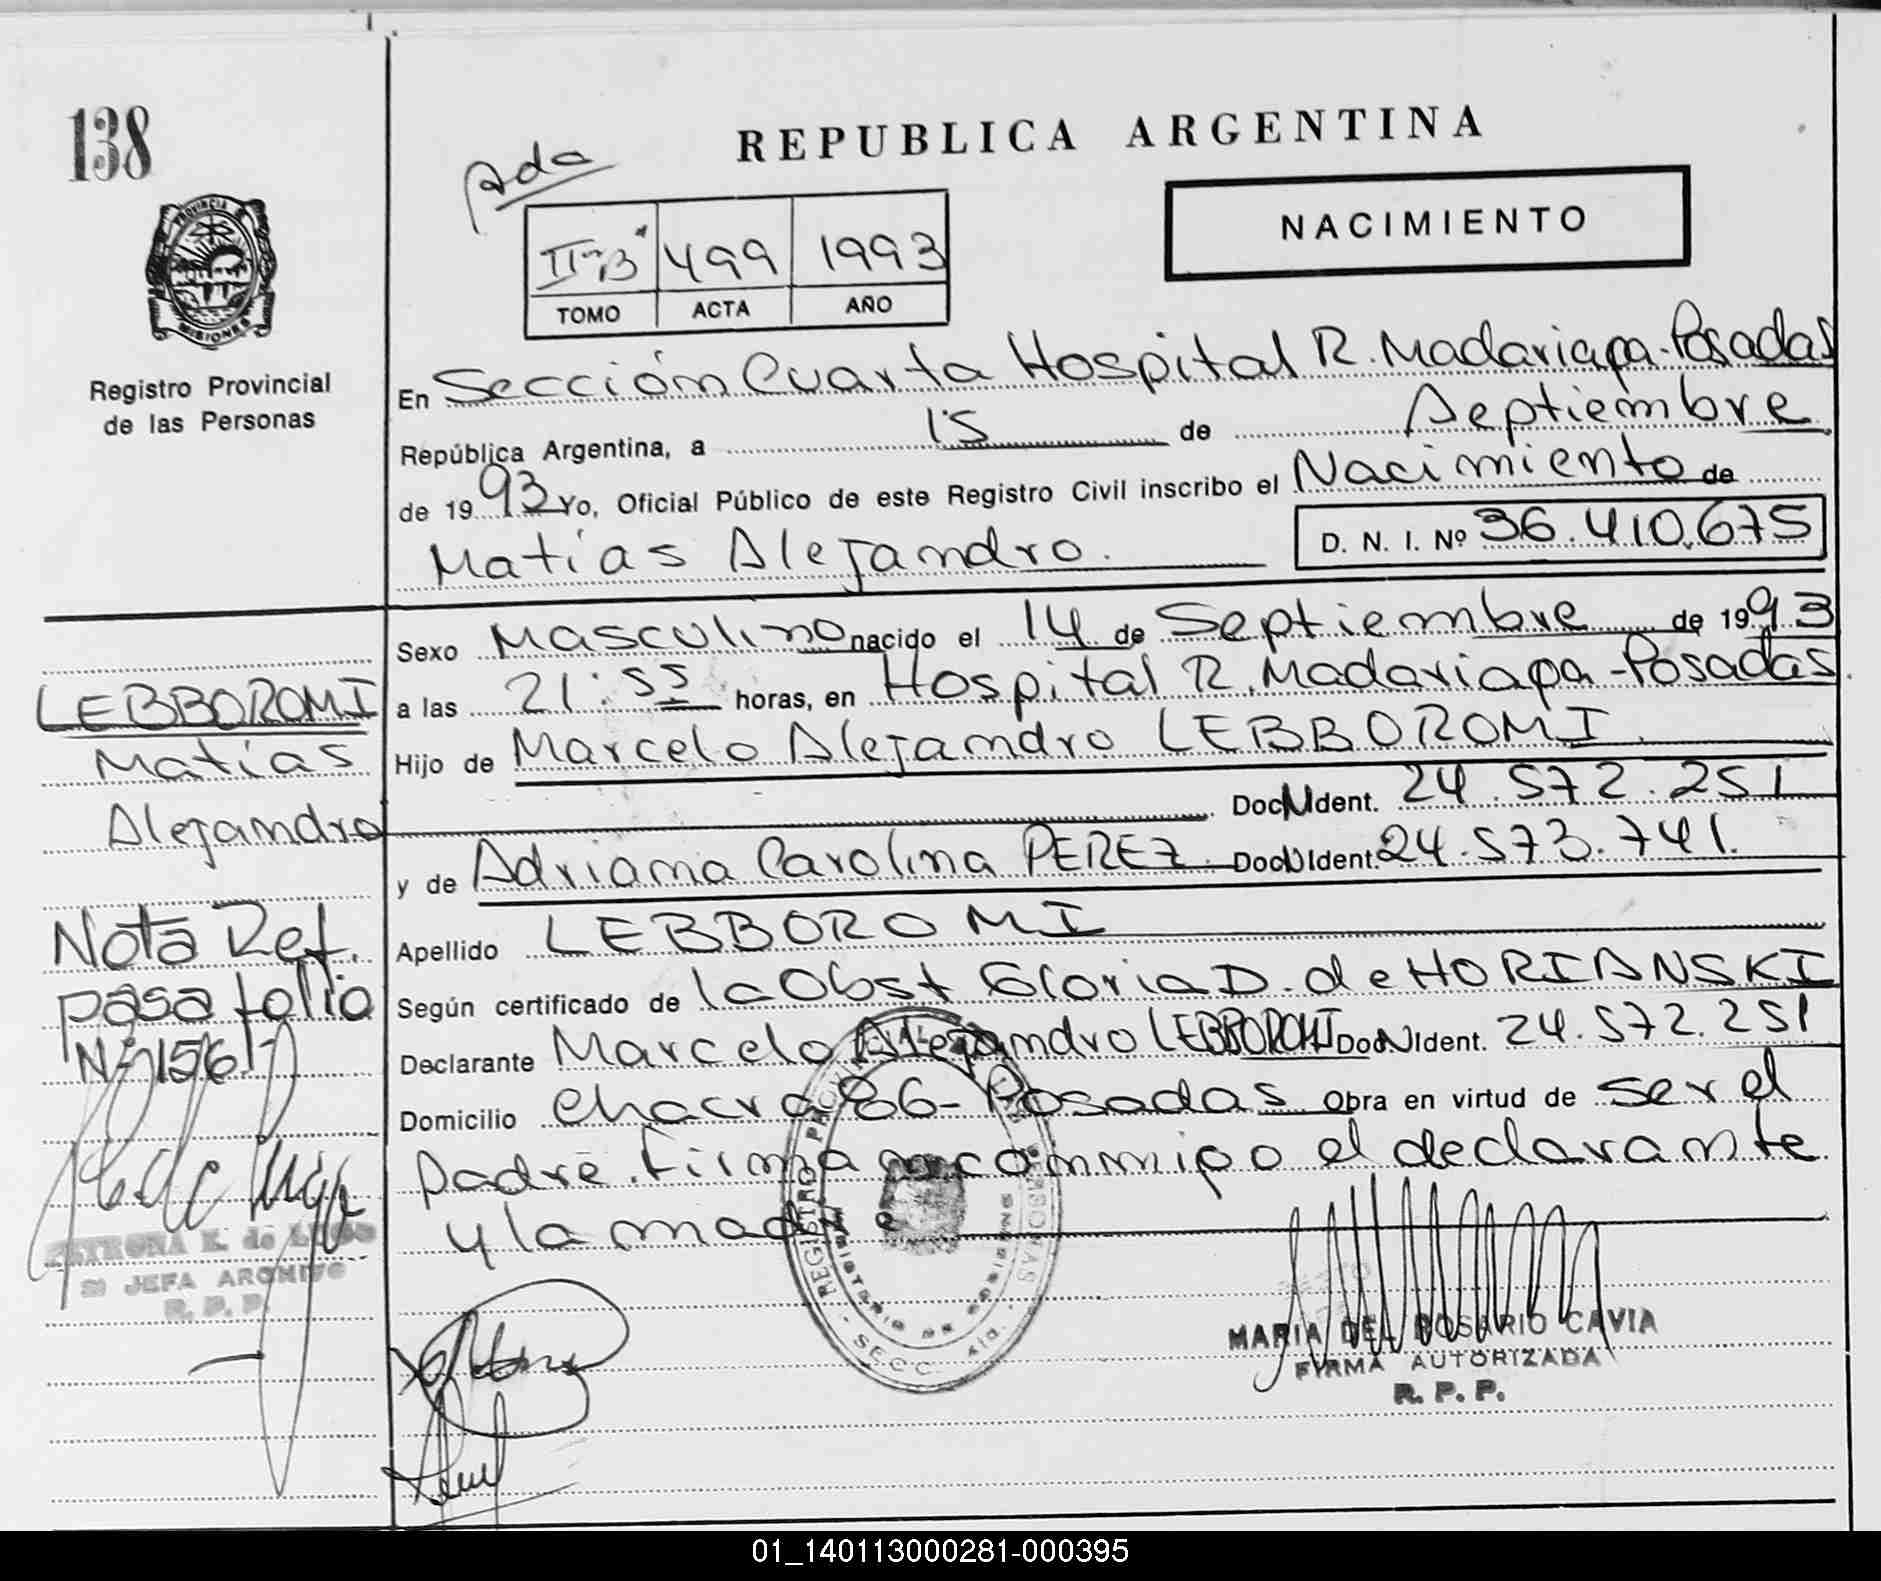 138
REPUBLICA ARGENTINA
Ada
NACIMIENTO
II-B 499 1993
TOMO ACTA AÑO
PROVINCIA
MISIONES
Registro Provincial
de las Personas
En Sección Cuarta Hospital R. Madariaga-Posadas
República Argentina, a 15 de Septiembre
de 1993 Yo, Oficial Público de este Registro Civil inscribo el Nacimiento de
Matías Alejandro. D. N. I. Nº 36.410.675
Sexo Masculino nacido el 14 de Septiembre de 1993
a las 21:55 horas, en Hospital R. Madariaga-Posadas.
Hijo de Marcelo Alejandro LEBBOROMI
Doc N Ident. 24.572.251
y de Adriana Carolina PEREZ. Doc N Ident. 24.573.741.
Apellido LEBBOROMI
Según certificado de la Obst Gloria D. de HORIANSKI
Declarante Marcelo Alejandro LEBBOROMI Doc N Ident. 24.572.251
Domicilio Chacra 86-Posadas Obra en virtud de ser el
padre. Firma conmigo el declarante
y la madre
LEBBOROMI
Matías
Alejandro
Nota Ref.
pasa folio
Nº 156
JEFA ARCHIVO
R. P. P.
REGISTRO PROVINCIAL DE LAS PERSONAS
MINISTERIO DE GOBIERNO
SECC. 4ta.
MARIA DEL ROSARIO CAVIA
FIRMA AUTORIZADA
R. P. P.
01_140113000281-000395